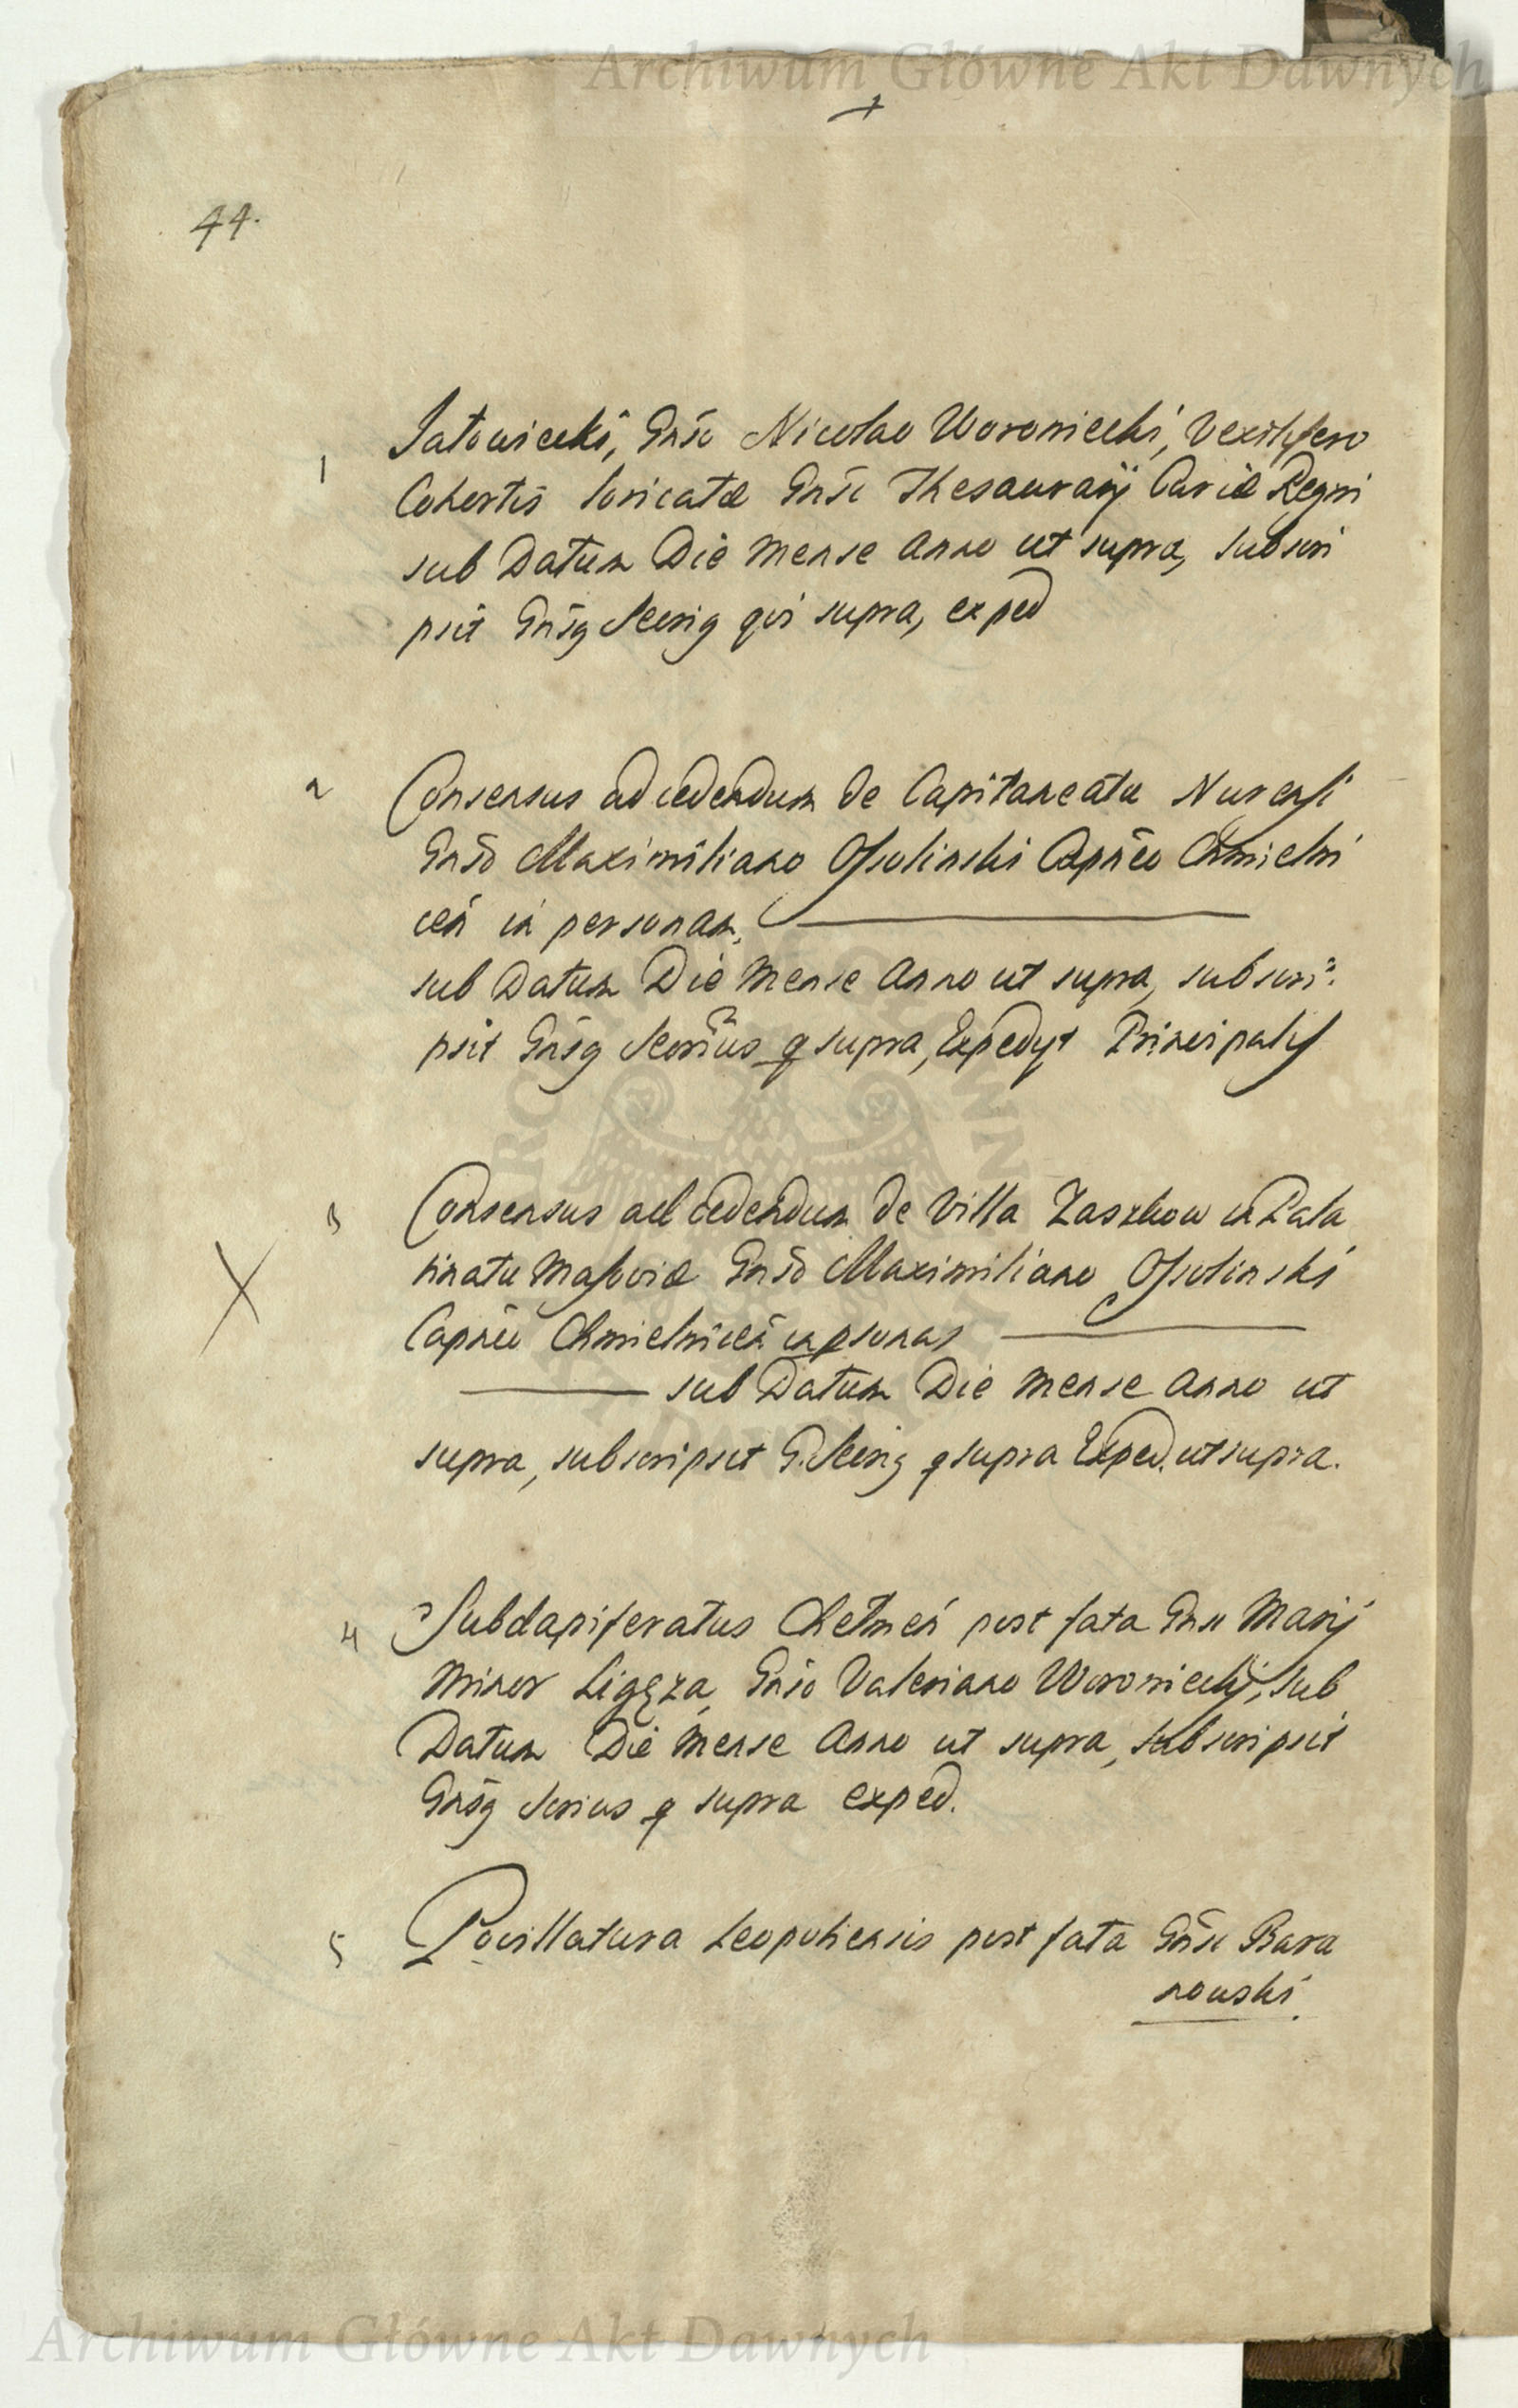 Archiwum Główne Akt Dawnych
44.
1 Jatowiecki, Gnso Nicolao Woroniecki, Vexillifero
Cohortis loricatæ Gnsi Thesaurarij Curiæ Regni
sub Datum Die Mense Anno ut supra, subscri
psit Gnsg Secrig qui supra, exped
2 Consensus ad cedendum de Capitaneatu Nurensi
Gnso Maximiliano Ossolinski Capneo Chmielni
cen in personam,
sub Datum Die Mense Anno ut supra, subscri:
psit Gnsg Secrius q supra, Expedyt Principalis
3 Consensus ad cedendum de Villa Zaszkow in Pala
tinatu Masoviæ Gnso Maximiliano Ossolinski
Capneo Chmielnicen in psonas
sub Datum Die Mense Anno ut
supra, subscripsit G. Secrig q supra Exped. ut supra.
4 Subdapiferatus Chelmen post fata Gnsi Marij
Minor Ligęza, Gnso Valeriano Woroniecki, sub
Datum Die Mense Anno ut supra, subscripsit
Gnsg Scrius q supra exped.
5 Pocillatura Leopoliensis post fata Gnsi Bara
nowski.
Archiwum Główne Akt Dawnych